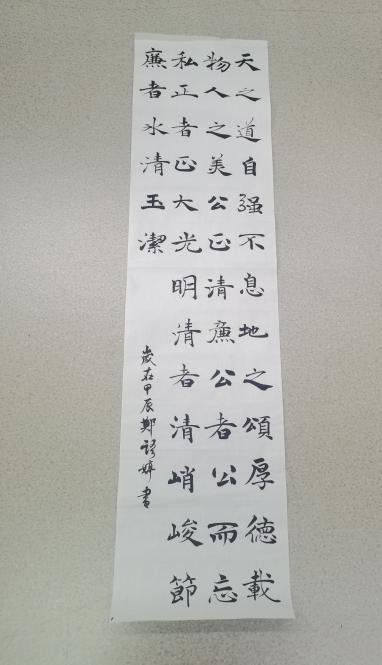 天之道自强不息地之頌厚德載
物人之美公正清廉公者公而忘
私正者正大光明清者清峭峻節
廉者冰清玉潔
歲在甲辰鄭語婷書